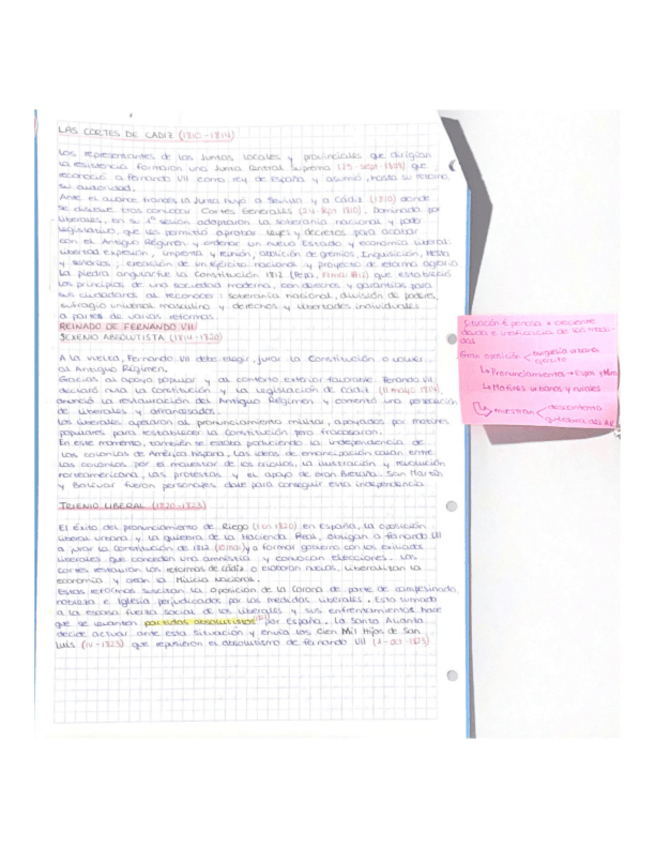 LAS CORTES DE CADIZ (1810-1814)
Los representantes de las Juntas locales y provinciales que dirigían
la resistencia formaron una Junta Central Suprema (25-sept-1808) que
reconoció a Fernando VII como rey de España y asumió, hasta su retorno,
su autoridad.
Ante el avance francés la Junta huyó a Sevilla y a Cádiz (1810) donde
se disuelve tras convocar Cortes Generales (24-sept 1810). Dominado por
liberales, en su 1ª sesión adoptaron la soberanía nacional y poder
legislativo, que les permitió aprobar leyes y decretos para acabar
con el Antiguo Régimen y ordenar un nuevo Estado y economía liberal:
libertad expresión, imprenta y reunión, abolición de gremios, Inquisición, Mesta
y señoríos, creación de un ejército nacional y proyecto de reforma agraria
la piedra angular fue la Constitución 1812 que estableció
los principios de una sociedad moderna, con derechos y garantías para
sus ciudadanos al reconocer: soberanía nacional, división de poderes,
sufragio universal masculino y derechos y libertades individuales
a parte de varias reformas.
REINADO DE FERNANDO VII
SEXENIO ABSOLUTISTA (1814-1820)
A la vuelta, Fernando VII debe elegir, jurar la Constitución o volver
al Antiguo Régimen.
Gracias al apoyo popular y al contexto exterior favorable. Fernando VII,
declaró nula la Constitución y la legislación de Cádiz (4 mayo 1814),
anunció la restauración del Antiguo Régimen y comenzó una persecución
de liberales y afrancesados.
Los liberales apelaron al pronunciamiento militar, apoyados por motines
populares para restablecer la Constitución pero fracasaron.
En este momento, también se estaba produciendo la independencia de
las colonias de América hispana, las ideas de emancipación calan entre
las colonias por el malestar de los criollos, la ilustración y revolución
norteamericana, las protestas y el apoyo de Gran Bretaña. San Martín
y Bolívar fueron personajes clave para conseguir esta independencia.
TRIENIO LIBERAL (1820-1823)
El éxito del pronunciamiento de Riego (1 en 1820), en España, la oposición
liberal urbana y la quiebra de la Hacienda Real, obligan a Fernando VII
a jurar la Constitución de 1812 (10 mar) y a formar gobierno con los exiliados
liberales que conceden una amnistía y convocan elecciones. Las
cortes restauran las reformas de Cádiz o elaboran nuevas, liberalizan la
economía y crean la Milicia Nacional.
Estas reformas suscitan la oposición de la Corona de parte de campesinado,
nobleza e Iglesia perjudicados por las medidas liberales. Esto sumado
a la escasa fuerza social de los liberales y sus enfrentamientos hace
que se levanten partidas absolutistas por España. La Santa Alianza
decide actuar ante esta situación y envía los Cien Mil Hijos de San
Luis (IV-1823) que repusieron el absolutismo de Fernando VII (1-oct-1823)
Situación € penosa + creciente
deuda e ineficacia de las medi-
das
Gran oposición burguesía urbana
ejército
Pronunciamientos → Espoz y Mina
Motines urbanos y rurales
muestran descontento
quiebra del AR